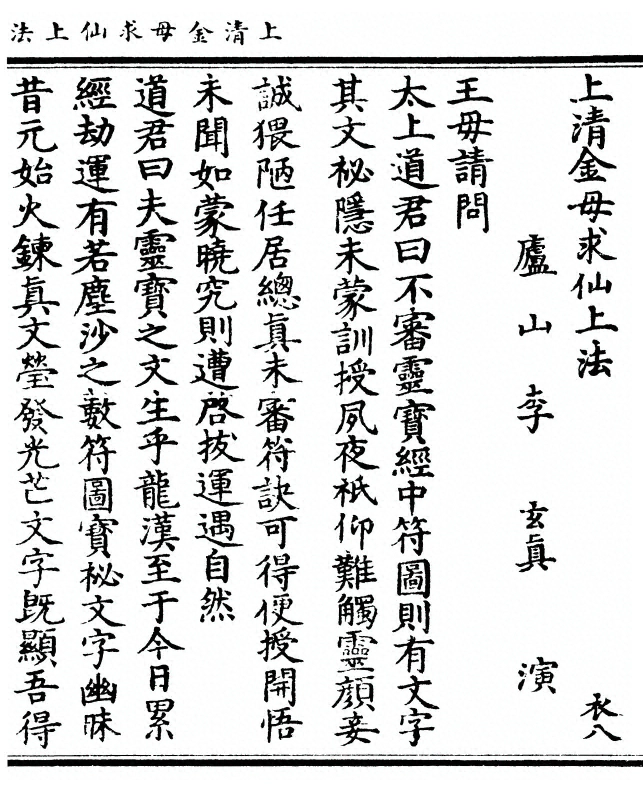 上清金母求仙上法
上清金母求仙上法
衣八
廬山李玄眞演
王母請問
太上道君曰不審靈寶經中符圖則有文字
其文秘隱未蒙訓授夙夜祇仰難觸靈顔妾
誠猥陋任居總眞未審符訣可得便授開悟
未聞如蒙曉究則遭啓拔運遇自然
道君曰夫靈寶之文生乎龍漢至于今日累
經劫運有若塵沙之數符圖寳秘文字幽昧
昔元始火鍊眞文瑩發光芒文字旣顯吾得